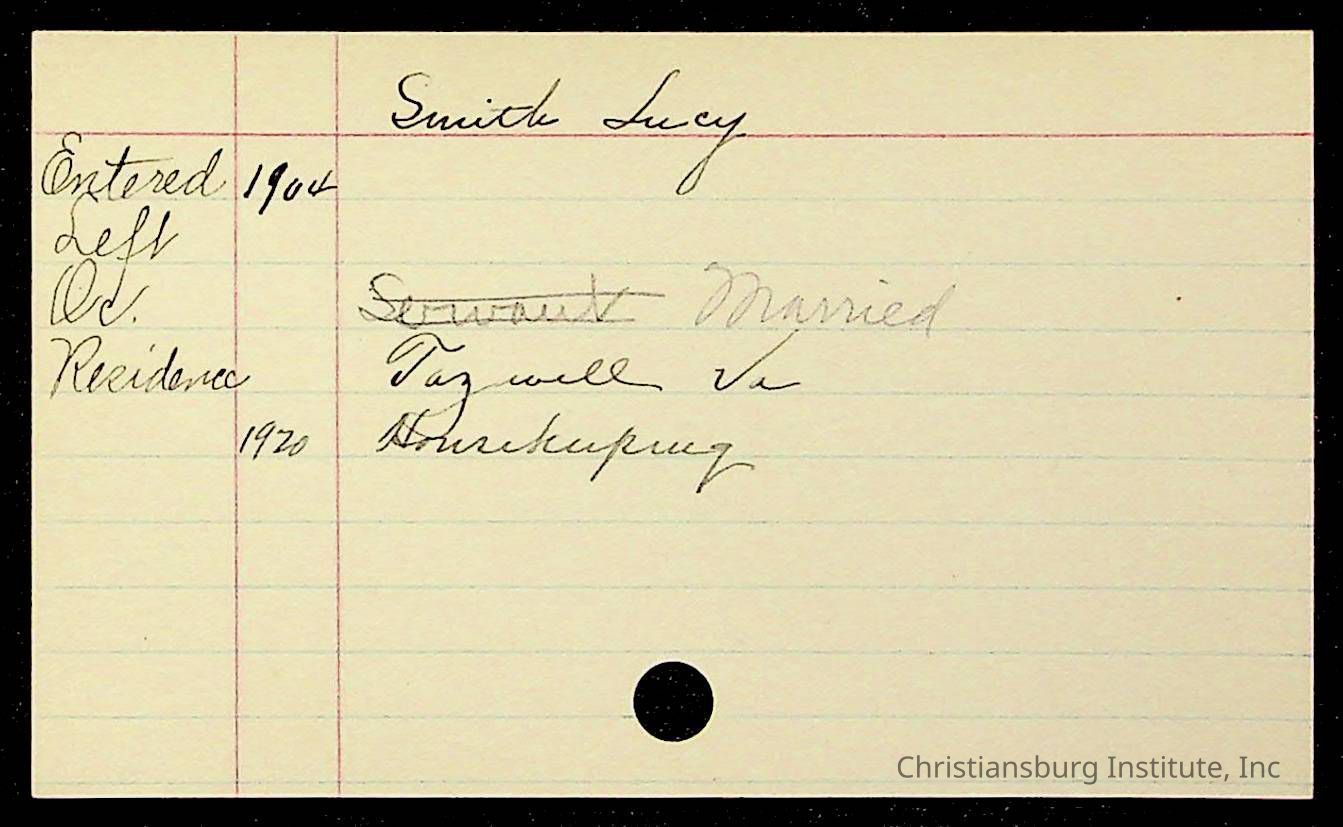 Smith Lucy
Entered 1904
Left
Oc. Servant Married
Residence Tazwell Va
1920 Housekeeping
Christiansburg Institute, Inc